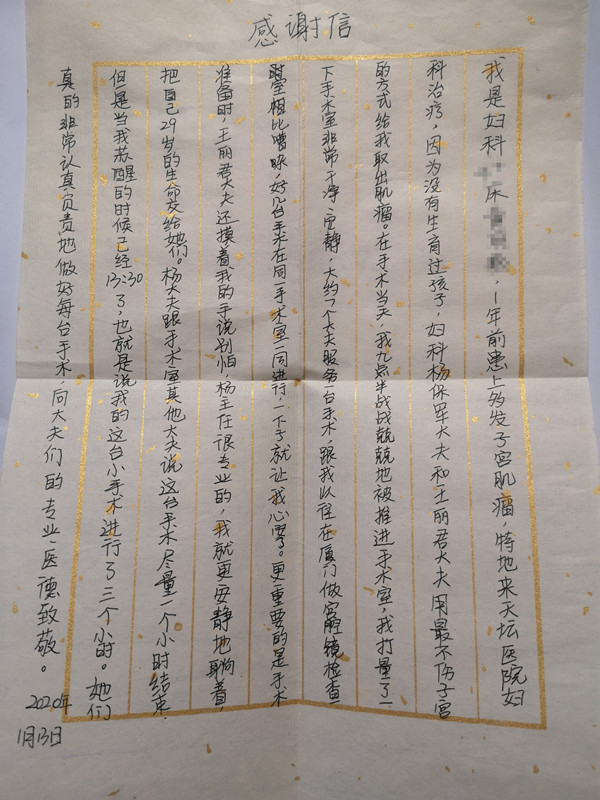 感谢信
我是妇科床,1年前患上多发子宫肌瘤,特地来天坛医院妇
科治疗,因为没有生育过孩子,妇科杨保军大夫和王丽君大夫用最不伤子宫
的方式给我取出肌瘤。在手术当天,我九点半战战兢兢地被推进手术室,我打量了一
下手术室非常干净、安静,大约7个大夫服务一台手术,跟我以往在厦门做宫腔镜检查
时室相比嘈杂,好几台手术在同一手术室一同进行,一下子就让我心安了。更重要的是手术
准备时,王丽君大夫还摸着我的手说别怕,杨主任很专业的,我就更安静地躺着,
把自己29岁的生命交给她们。杨大夫跟手术室其他大夫说这台手术尽量一个小时结束,
但是当我苏醒的时候已经13:30了,也就是说我的这台小手术进行了三个小时。她们
真的非常认真负责地做好每台手术,向大夫们的专业、医德致敬。
2020年
1月13日